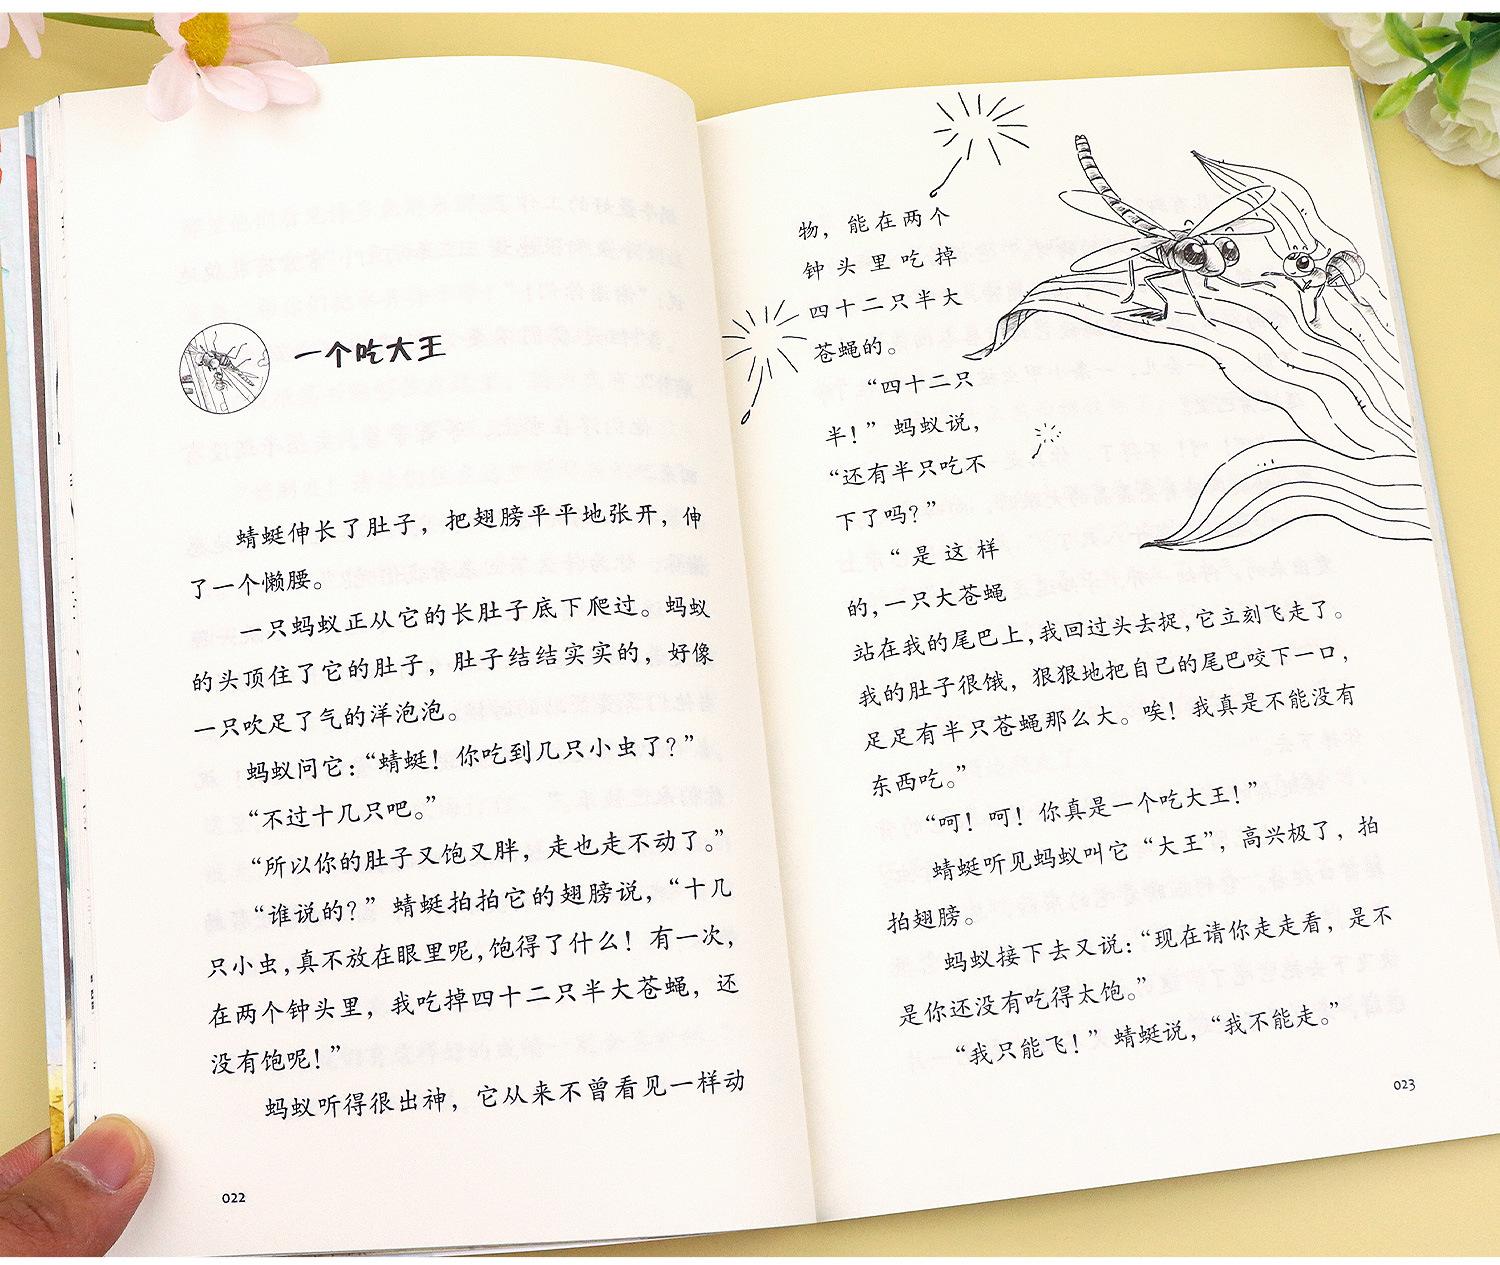 一个吃大王
蜻蜓伸长了肚子，把翅膀平平地张开，伸
了一个懒腰。
一只蚂蚁正从它的长肚子底下爬过。蚂蚁
的头顶住了它的肚子，肚子结结实实的，好像
一只吹足了气的洋泡泡。
蚂蚁问它：“蜻蜓！你吃到几只小虫了？”
“不过十几只吧。”
“所以你的肚子又饱又胖，走也走不动了。”
“谁说的？”蜻蜓拍拍它的翅膀说，“十几
只小虫，真不放在眼里呢，饱得了什么！有一次，
在两个钟头里，我吃掉四十二只半大苍蝇，还
没有饱呢！”
蚂蚁听得很出神，它从来不曾看见一样动
022
物，能在两个
钟头里吃掉
四十二只半大
苍蝇的。
“四十二只
半！”蚂蚁说，
“还有半只吃不
下了吗？”
“是这样
的，一只大苍蝇
站在我的尾巴上，我回过头去捉，它立刻飞走了。
我的肚子很饿，狠狠地把自己的尾巴咬下一口，
足足有半只苍蝇那么大。唉！我真是不能没有
东西吃。”
“呵！呵！你真是一个吃大王！”
蜻蜓听见蚂蚁叫它“大王”，高兴极了，拍
拍翅膀。
蚂蚁接下去又说：“现在请你走走看，是不
是你还没有吃得太饱。”
“我只能飞！”蜻蜓说，“我不能走。”
023